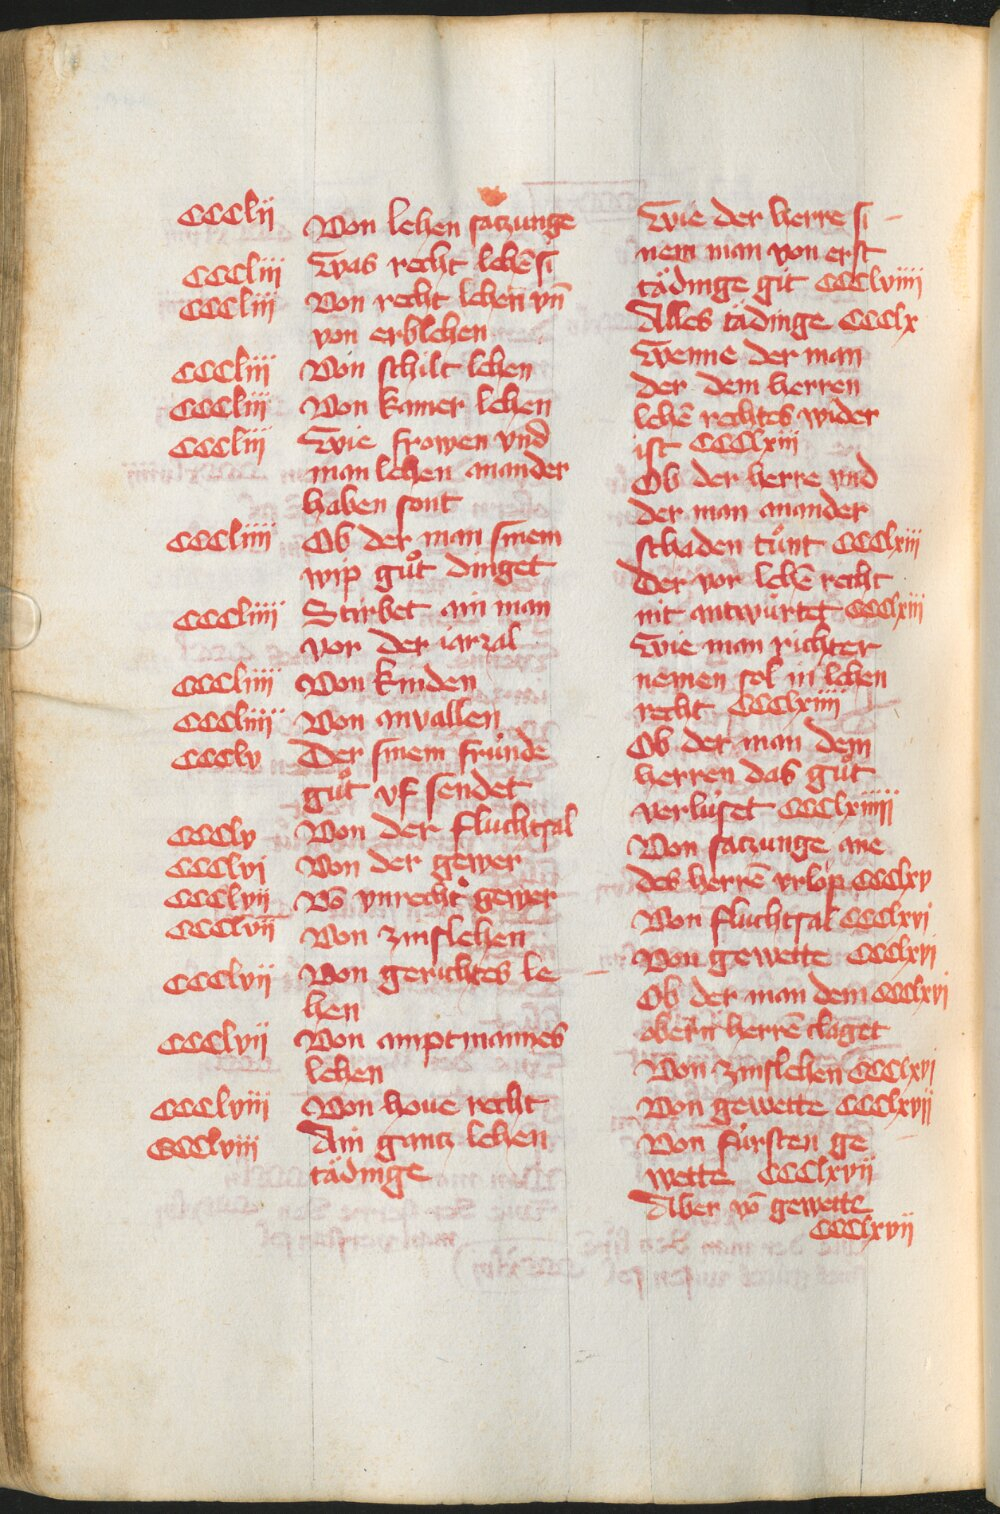 CCClii Von lehen satzunge
CCCliii Was recht lehē si
CCCliii Von recht lehen vn̄
von erblehen
CCCliii Von schilt lehen
CCCliii Von kamer lehen
CCCliii Wie frowen vnd
man lehen ainander
haben sont
CCCliiii Ob der man sinem
wip gůt dinget
CCCliiii Stirbet ain man
vor der iarzal
CCCliiii Von kinden
CCCliiii Von anvallen
CCClv Der sinem fründe
gůt vf sendet
CCClv Von der fluchtsal
CCClvi Von der gewer
CCClvii Vō vnrecht gewer
CCClvii Von zinslehen
CCClvii Von gerichtes le
hen
CCClvii Von amptmannes
lehen
CCClviii Von houe recht
CCClviii Ain gantz lehen
tädinge
Wie der herre si
nem man von erst
tädinge git CCClviiii
Alles tädinge CCClx
Wenne der man
der dem herren
lehē rechtes wider
ist CCClxiii
Ob der herre vnd
der man ainander
schaden tůnt CCClxiii
Der vor lehē recht
nit antwürtet CCClxiii
Wie man richter
nemen sol in lehen
recht CCClxiiii
Ob der man dem
herren das gůt
verlüset CCClxiiiii
Von satzunge ane
des herrē vrlop CCClxv
Von fluchtsal CCClxvi
Von gewette CCClxvi
Ob der man dem CCClxvi
obern herrē claget
Von zinslehen CCClxvi
Von gewette CCClxvii
Von fürsten ge
wette CCClxvii
Aber vō gewette
CCClxvii